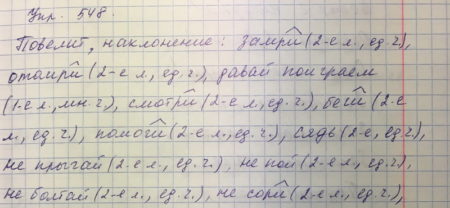 Упр. 548.
Повелит. наклонение: замри (2-е л., ед. ч.),
отомри (2-е л., ед. ч.), давай поиграем
(1-е л., мн. ч.), смотри (2-е л., ед. ч.), беги (2-е
л., ед. ч.), помоги (2-е л., ед. ч.), сядь (2-е, ед. ч.),
не прыгай (2-е л., ед. ч.), не пой (2-е л., ед. ч.),
не болтай (2-е л., ед. ч.), не сори (2-е л., ед. ч.),